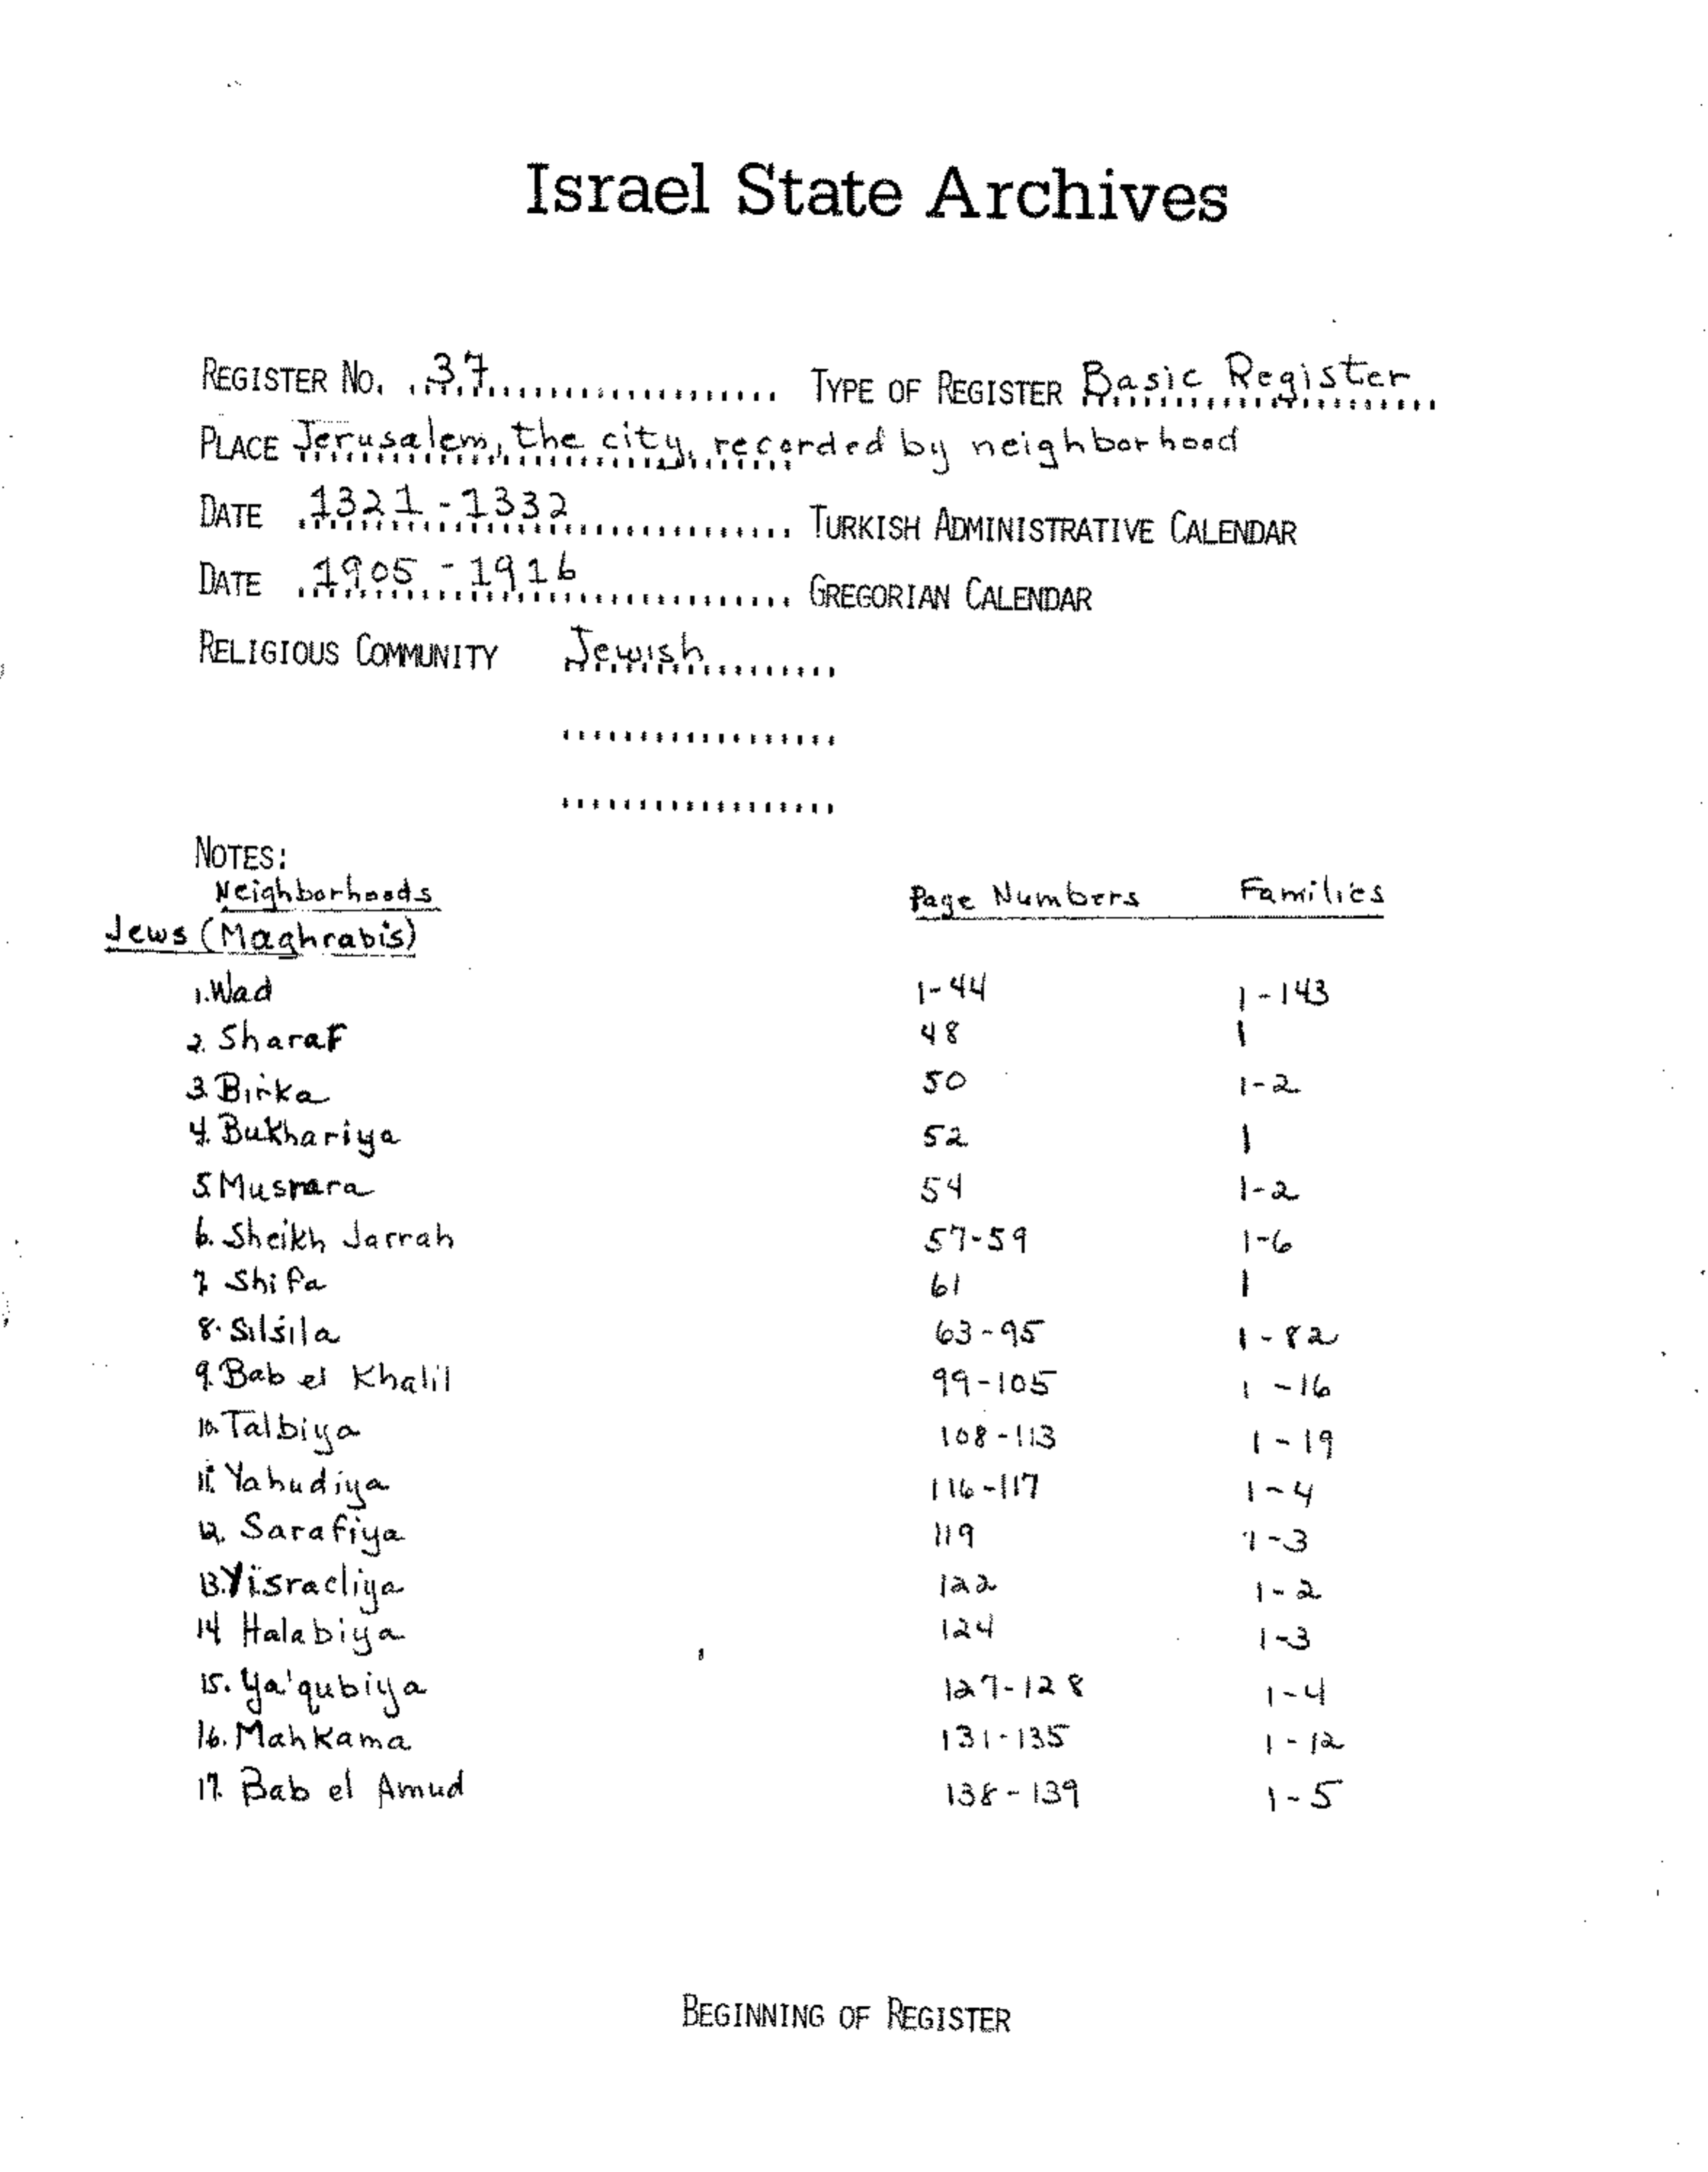 Israel State Archives
REGISTER NO. 37 TYPE OF REGISTER Basic Register
PLACE Jerusalem, the city, recorded by neighborhood
DATE 1321-1332 TURKISH ADMINISTRATIVE CALENDAR
DATE 1905-1916 GREGORIAN CALENDAR
RELIGIOUS COMMUNITY Jewish
NOTES:
Neighborhoods Page Numbers Families
Jews (Maghrabis)
1. Wad 1-44 1-143
2. Sharaf 48 1
3. Birka 50 1-2
4. Bukhariya 52 1
5. Musrara 54 1-2
6. Sheikh Jarrah 57-59 1-6
7. Shifa 61 1
8. Silsila 63-95 1-82
9. Bab el Khalil 99-105 1-16
10. Talbiya 108-113 1-19
11. Yahudiya 116-117 1-4
12. Sarafiya 119 1-3
13. Yisraeliya 122 1-2
14 Halabiya 124 1-3
15. Ya'qubiya 127-128 1-4
16. Mahkama 131-135 1-12
17. Bab el Amud 138-139 1-5
BEGINNING OF REGISTER